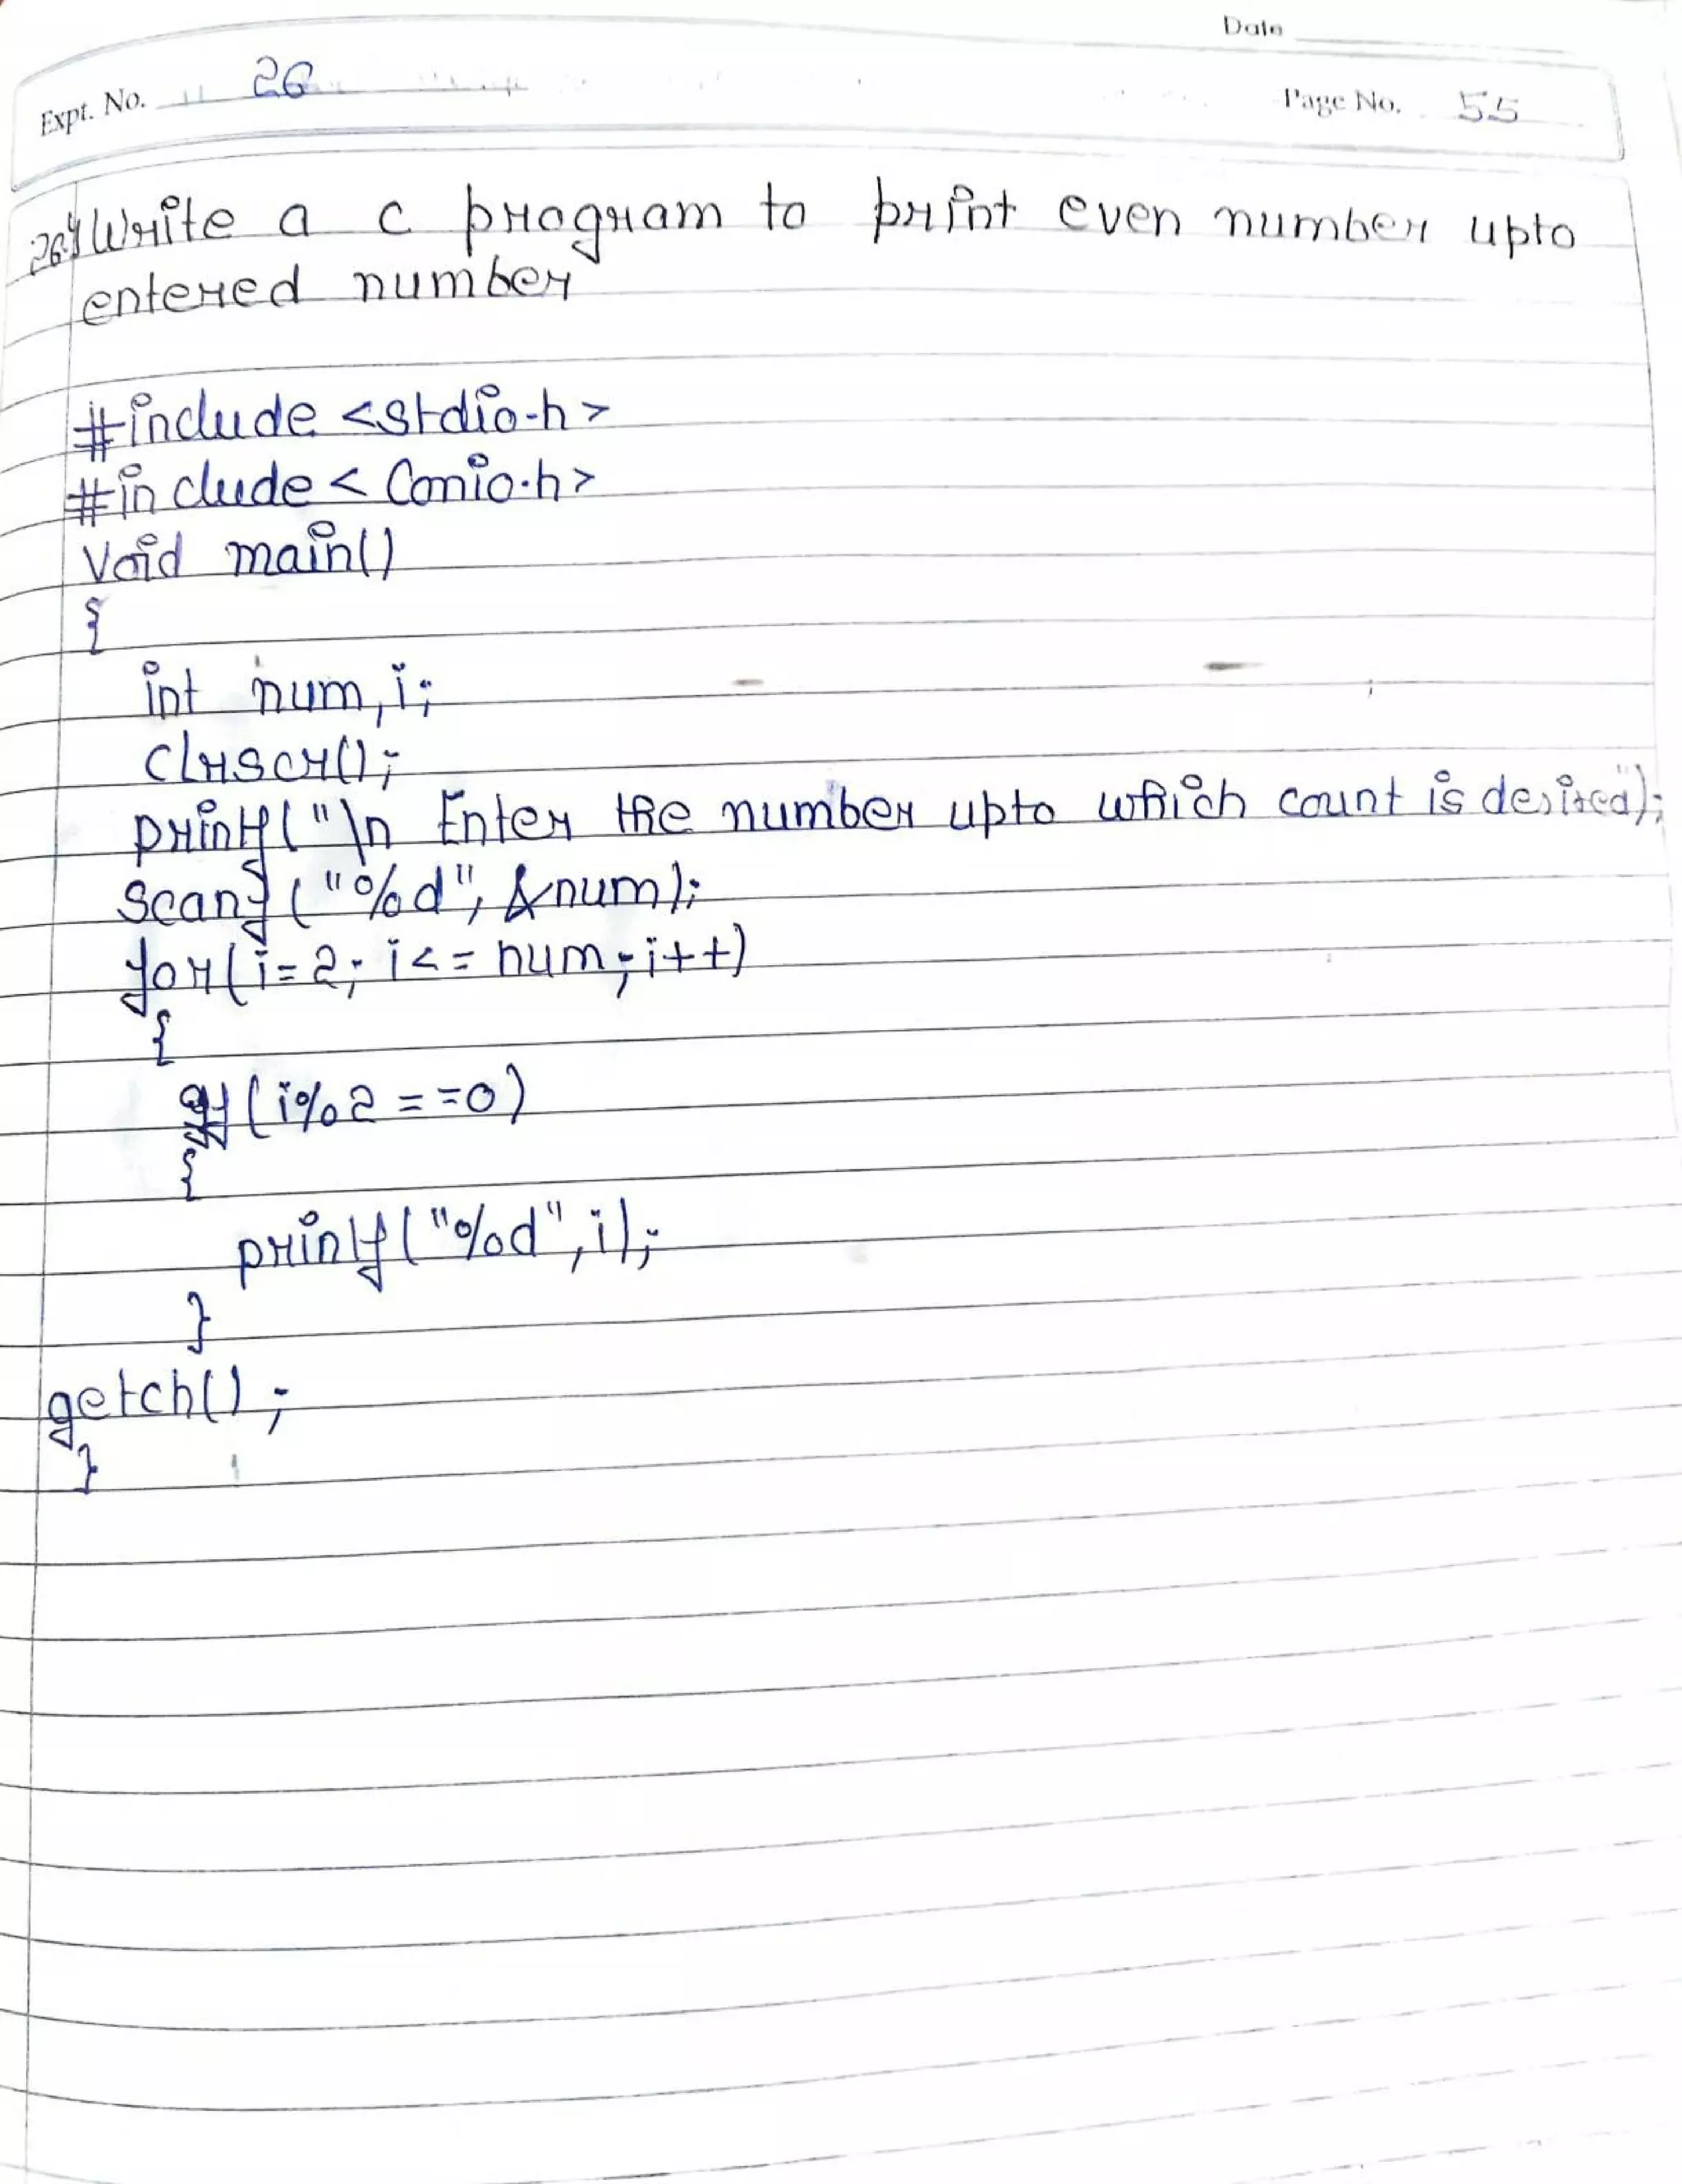 Date
Expt. No. 26
Page No. 55
26.) Write a c program to print even number upto
entered number
#include <stdio.h>
#include < Conio.h>
Void main()
{
int num, i;
clrscr();
printf("\n Enter the number upto which count is desired");
scanf("%d", &num);
for(i=2; i<= num; i++)
{
if(i%2 ==0)
{
printf("%d", i);
}
getch();
}